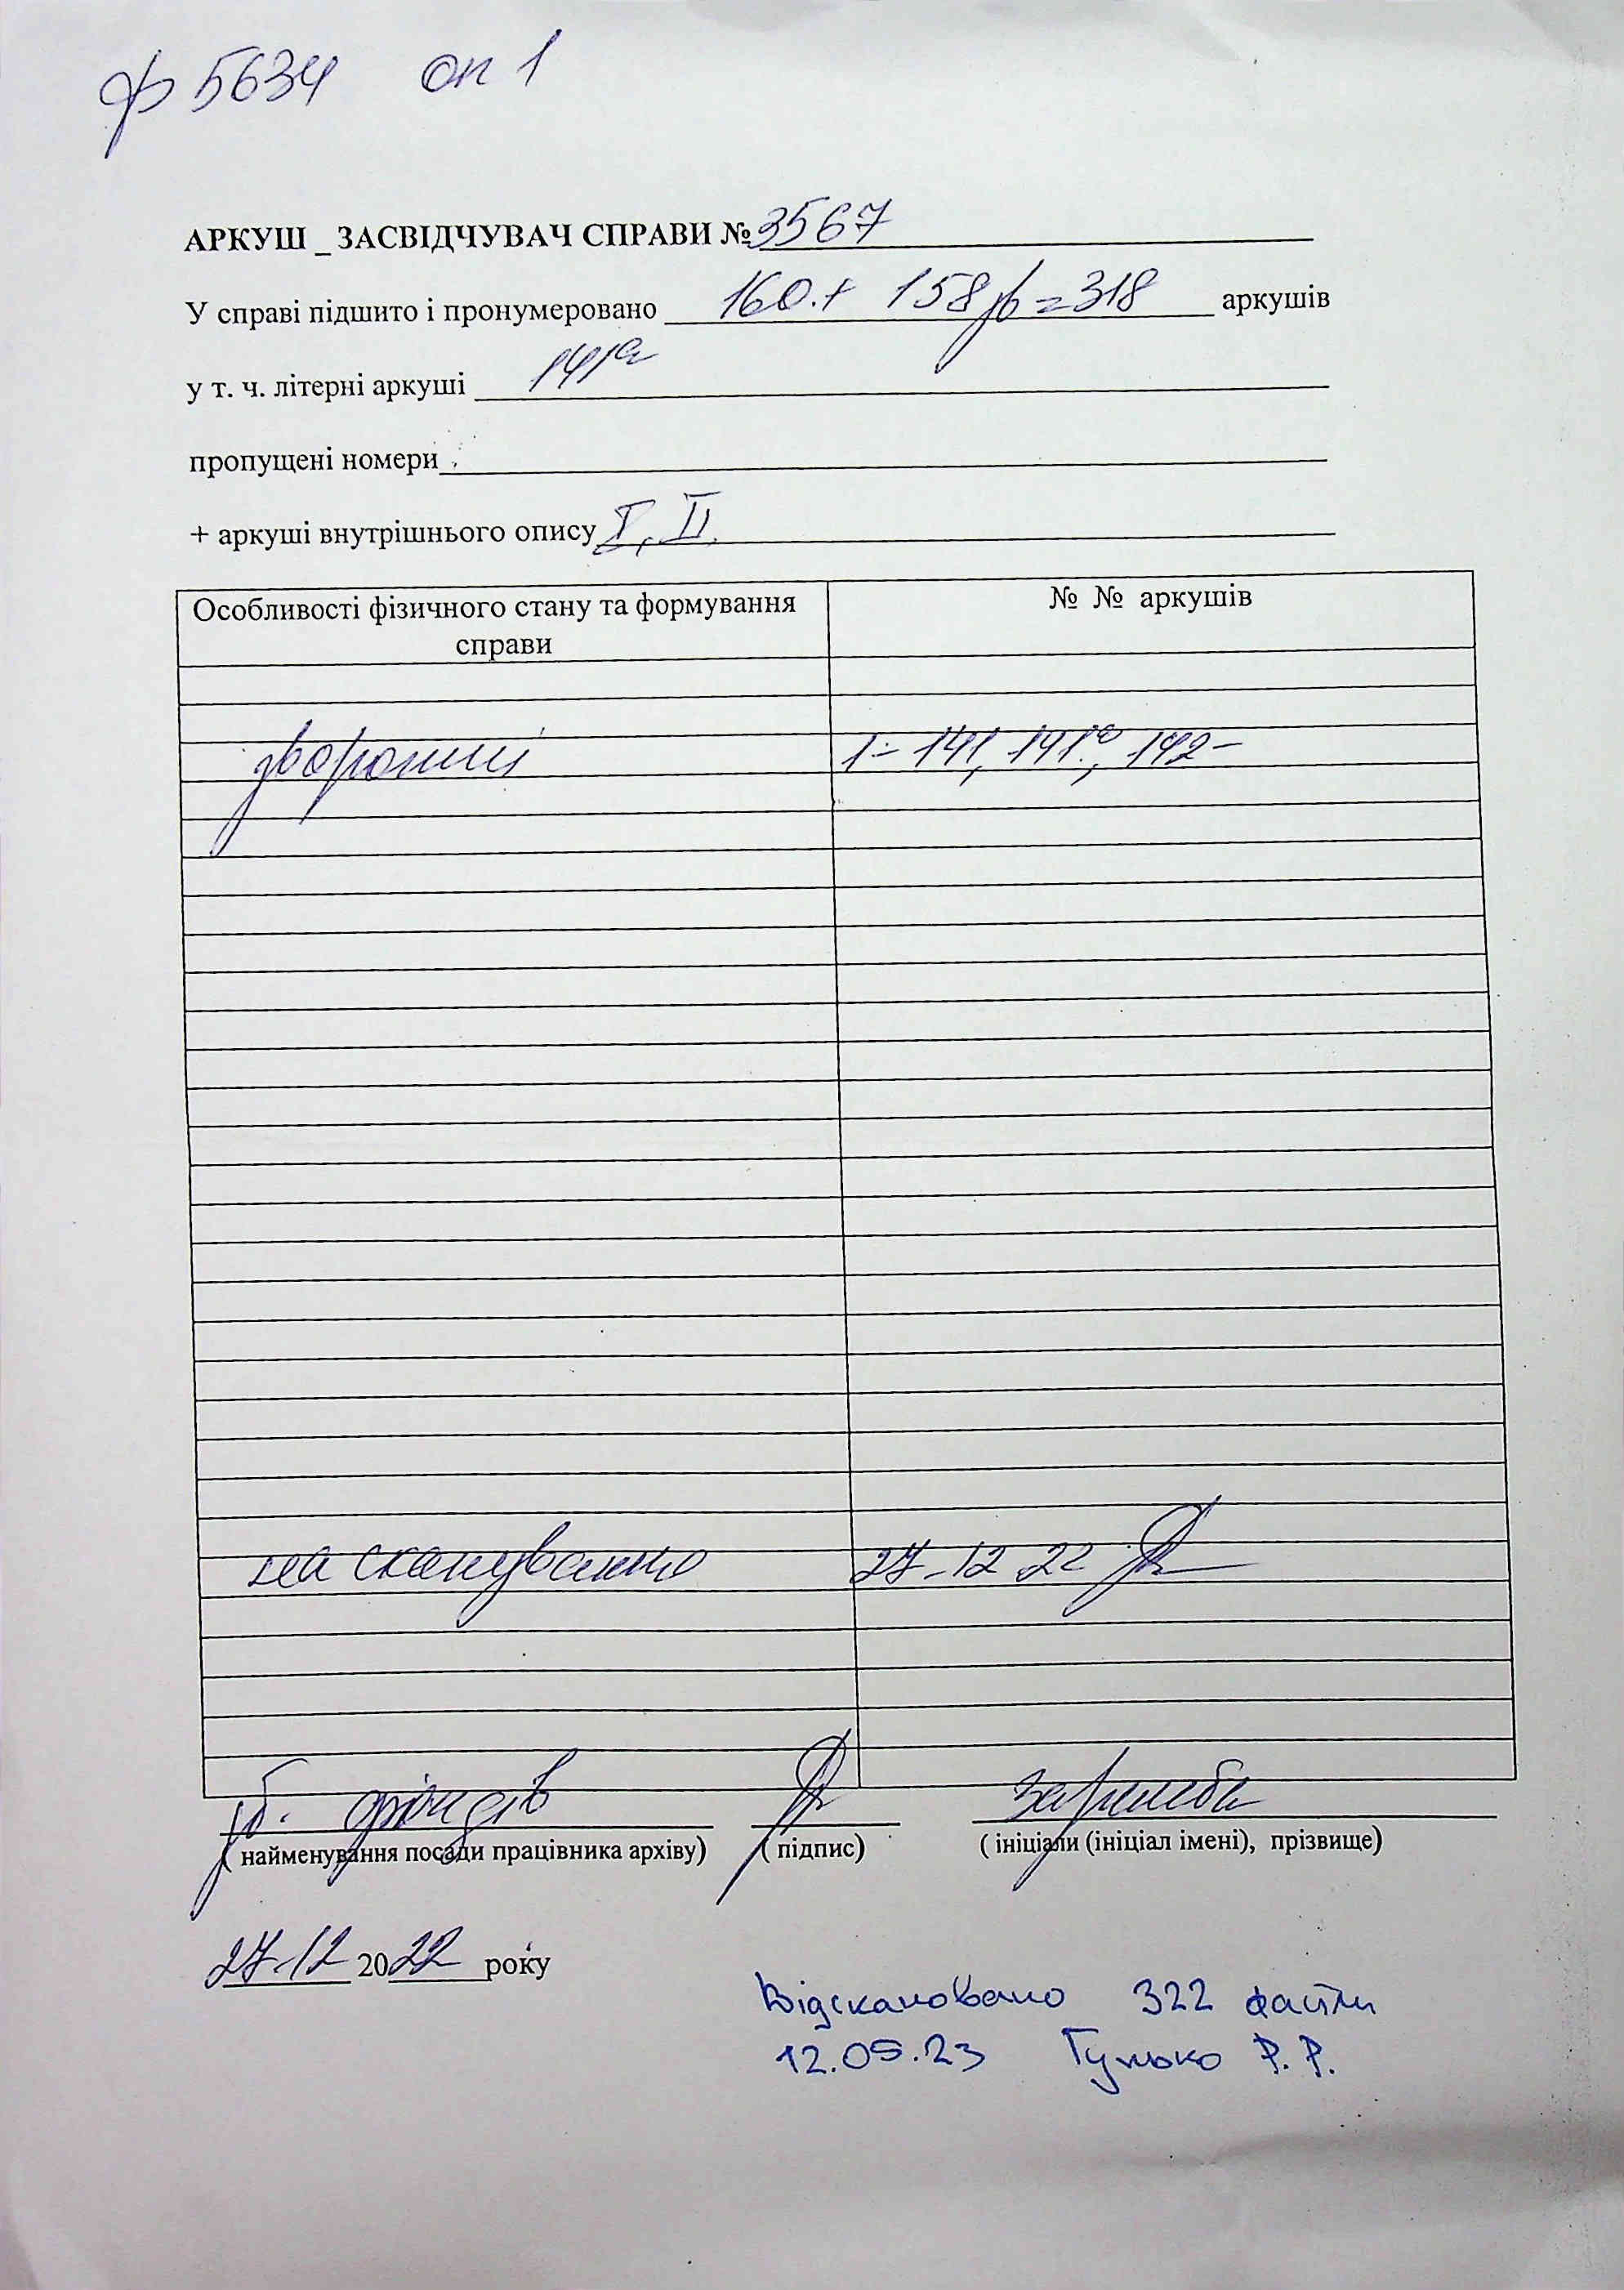 ф 5634 оп 1
АРКУШ _ ЗАСВІДЧУВАЧ СПРАВИ № 3567
У справі підшито і пронумеровано 160.+ 158 зв = 318 аркушів
у т. ч. літерні аркуші 141а
пропущені номери
+ аркуші внутрішнього опису I, II.
Особливості фізичного стану та формування справи
№ № аркушів
зворотині 1÷ 141, 141а, 142–
на сканування 27-12 22
фондів
( найменування посади працівника архіву) ( підпис) ( ініціали (ініціал імені), прізвище)
27-12 2022 року
Відскановано 322 файли
12.05.23 Гунько Р. Р.